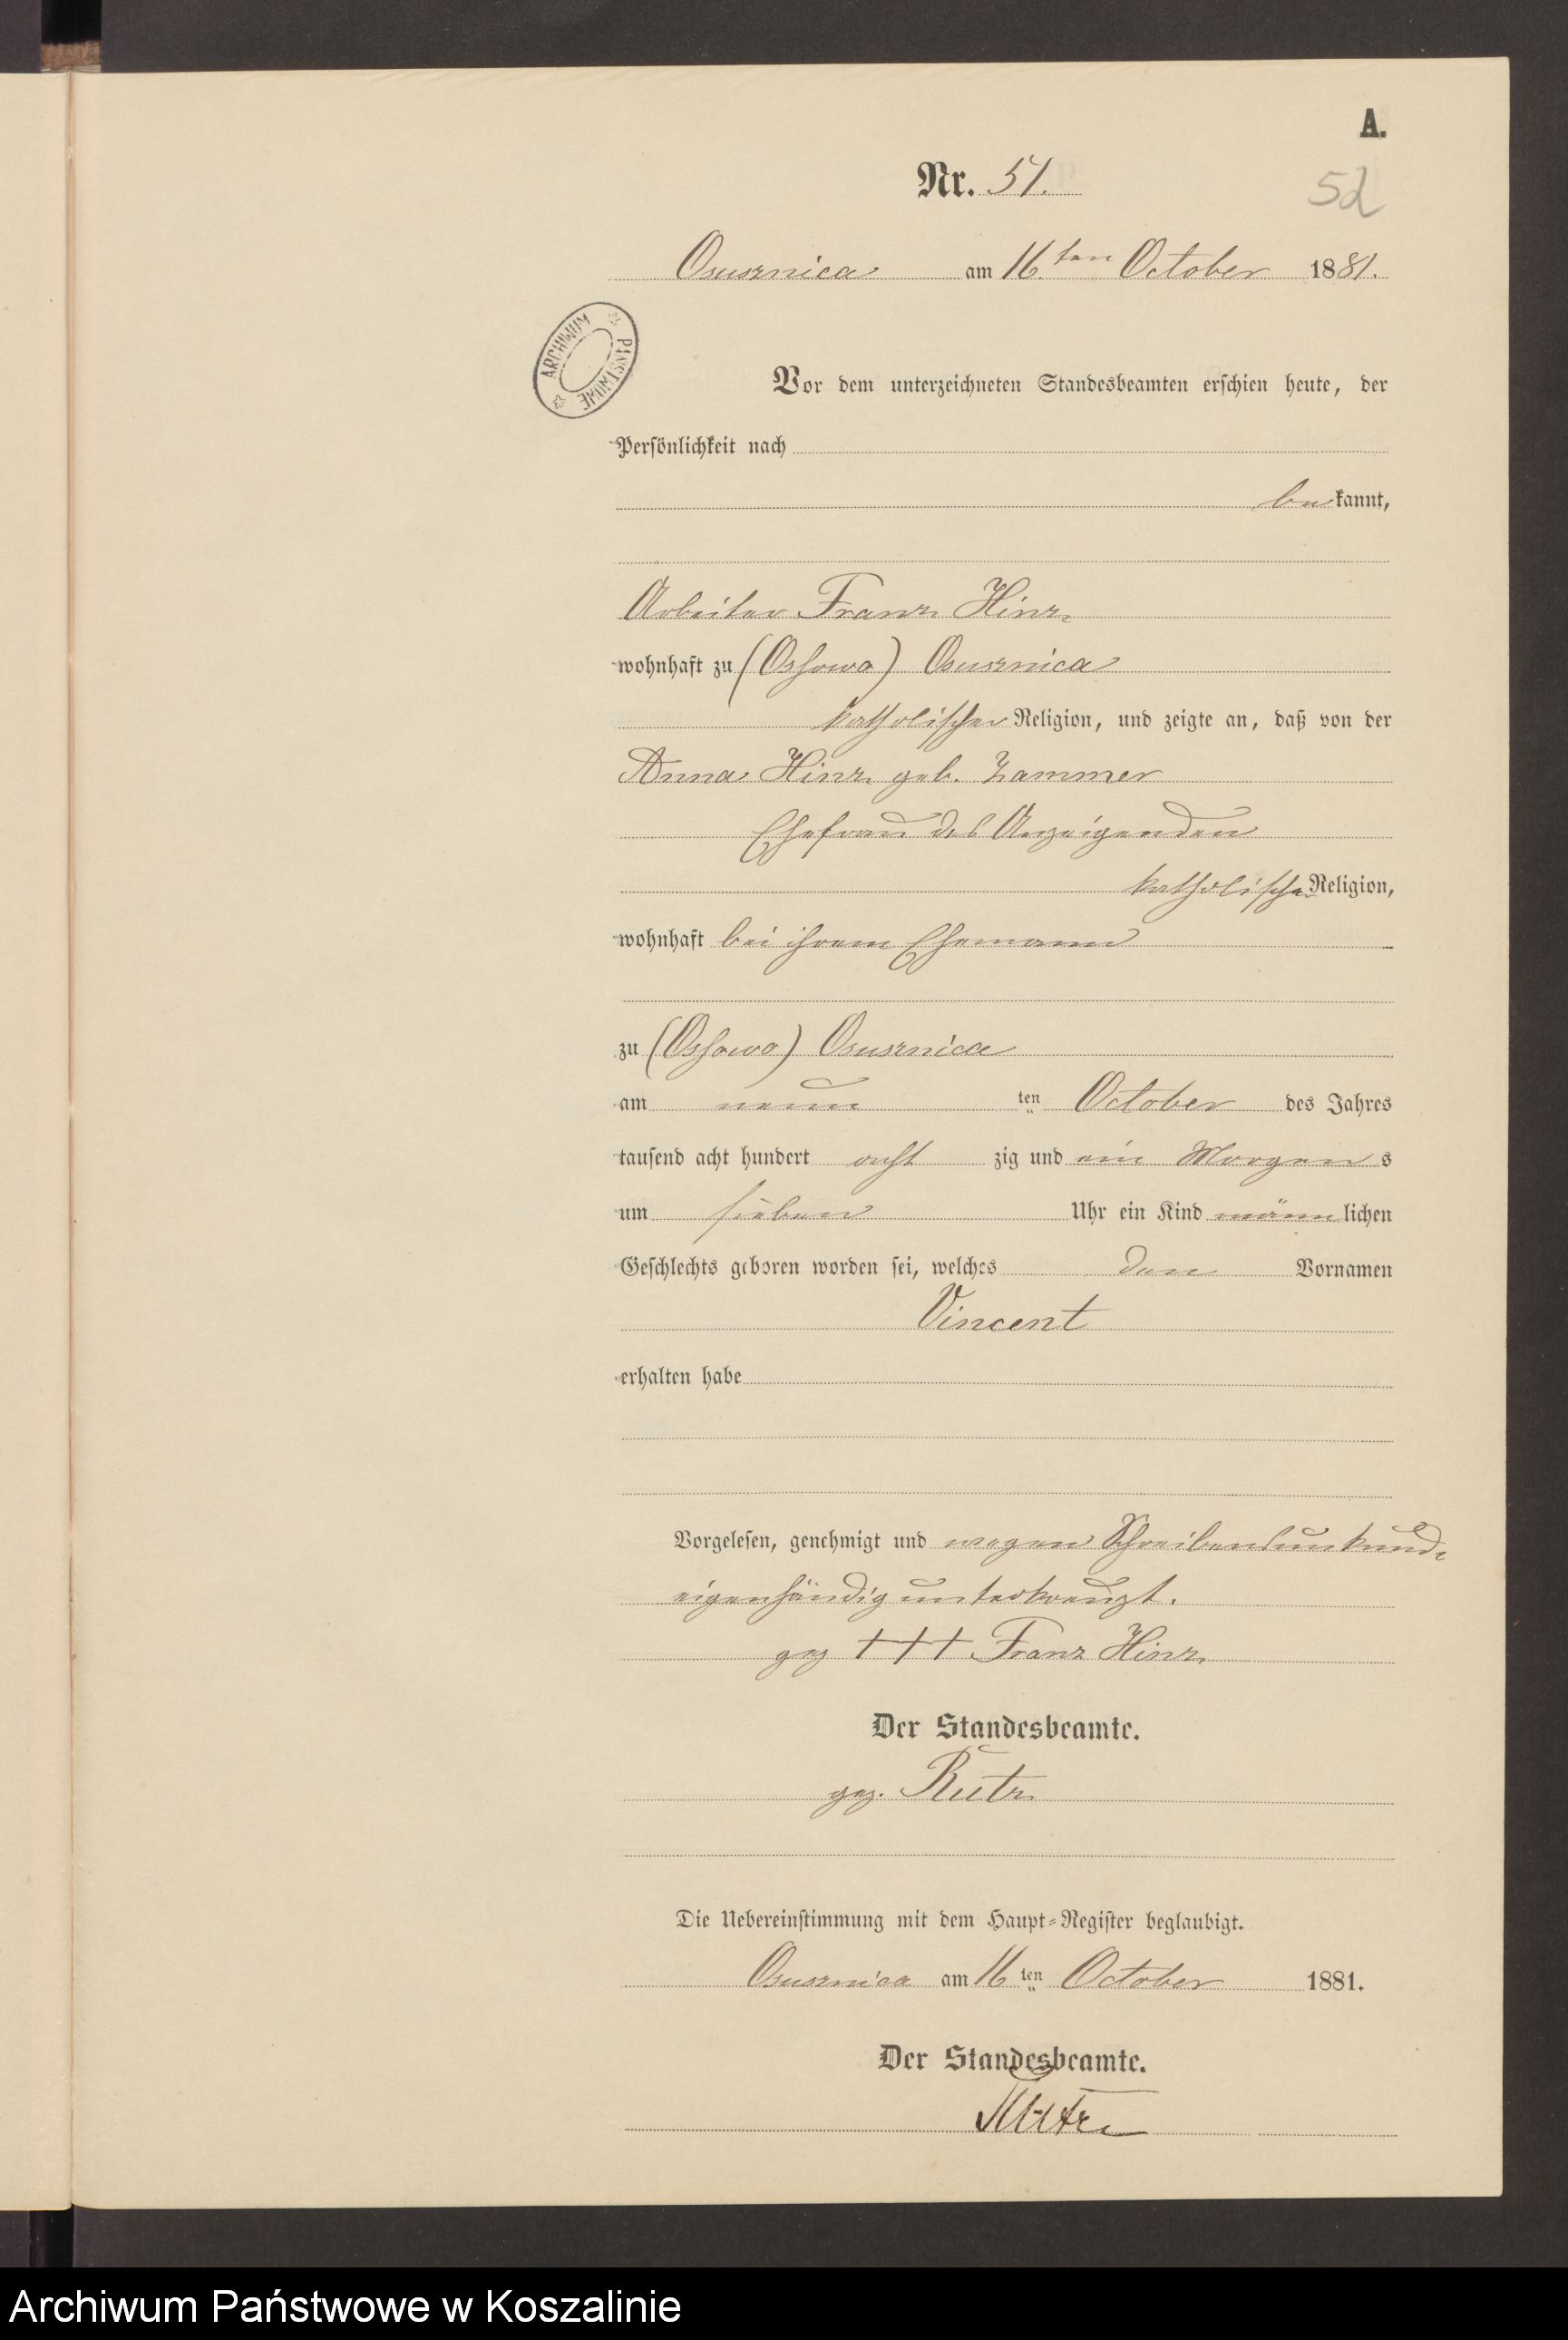 A.
Nr. 51.
52
Osusznica am 16.ten October 1881.
ARCHIWUM PAŃSTWOWE
Vor dem unterzeichneten Standesbeamten erschien heute, der
Persönlichkeit nach
bekannt,
Arbeiter Franz Hinz
wohnhaft zu (Ossowo) Osusznica
katholischer Religion, und zeigte an, daß von der
Anna Hinz geb. Zammer
Ehefrau des Anzeigenden
katholischer Religion,
wohnhaft bei ihrem Ehemann
zu (Ossowo) Osusznica
am neun ten October des Jahres
tausend acht hundert acht zig und ein Morgens
um sieben Uhr ein Kind männlichen
Geschlechts geboren worden sei, welches den Vornamen
Vincent
erhalten habe
Vorgelesen, genehmigt und wegen Schreibensunkunde
eigenhändig unterkreuzt.
gez +++ Franz Hinz
Der Standesbeamte.
gez. Rutz
Die Uebereinstimmung mit dem Haupt-Register beglaubigt.
Osusznica am 16 ten October 1881.
Der Standesbeamte.
Rutz
Archiwum Państwowe w Koszalinie